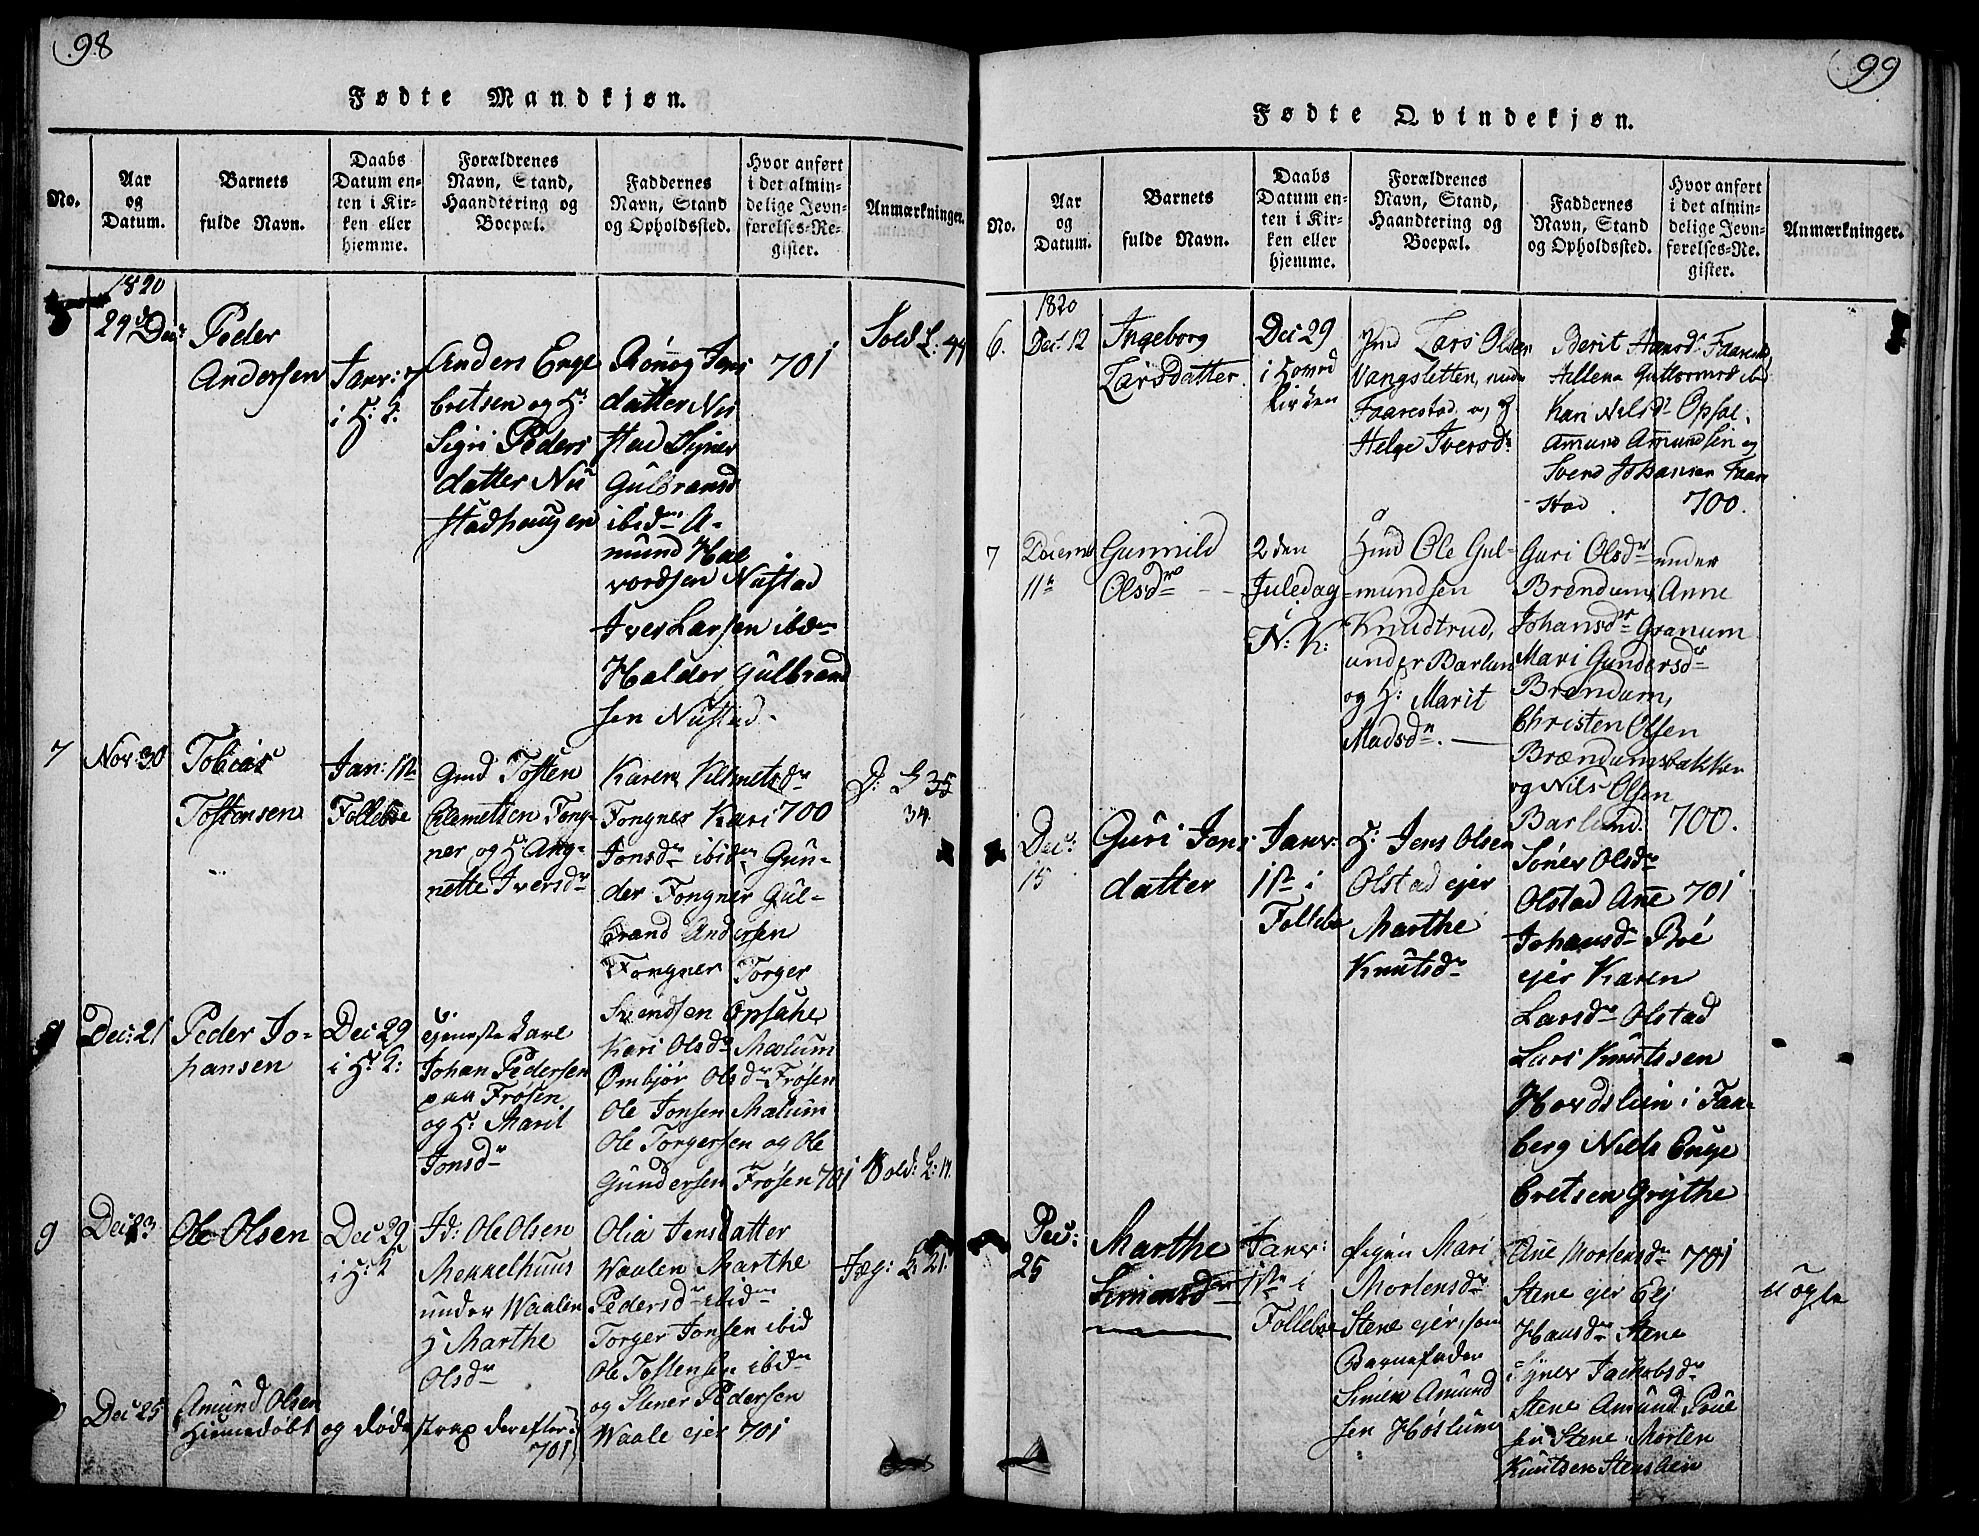 98
Fødte Mandkjøn.
No.
Aar
og
Datum.
Barnets
fulde Navn.
Daabs
Datum en-
ten i Kir-
ken eller
hjemme.
Forældrenes
Navn, Stand,
Haandtéring og
Boepæl.
Faddernes
Navn, Stand
og Opholdssted.
Hvor anført
i det almin-
delige Jevn-
førelses-Re-
gister.
Anmærkninger.
1820
29 Dec
Peder
Andersen
Janv: 7
i
Anders Enge
bretsen og H:
Sigri Peders
datter Nu
stadhaugen
Rönog Jens
datter Nu
stad Signer
Gulbransd
ibid A-
mund Hal
vordsen Nustad
Iver Larsen ibid
Halder Gulbrand
sen Nustad.
701
7
Nov: 30
Tobias
Tostensen
Jan: 1ste
Follebøe
Gmd Tosten
Clemetsen Fong-
ner og H: Ang-
nette Iversdr
Karen Klemetsdr
Fongner Kari
Jonsdr ibidm Gun-
der Fongner Gul-
brand Andersen
Fongner Torger
Svendsen Opsahe
700
35
34
Dec: 21
Peder Jo-
hansen
Dec 29
i
Johan Pedersen
paa Frøsen
og H: Marit
Jonsdr
Kari Olsdr Mælum
Ombjør Olsdr Frøsen
Ole Jonsen Mælum
Ole Torgersen og Ole
Gundersen Frøsen 701
9
Dec 23
Ole Olsen
Dec 29
i
Ole Olsen
Mekkelhuus
under Waalen
H Marthe
Olsdr
Olia Jensdatter
Waalen Marthe
Pedersdr ibidm
Torger Jonsen ibid
Ole Tostensen ibidm
og Stener Pedersen
Waale ejer 701
Dec 25
Amund Olsen
Hiemmedøbt og døde strax derefter
701
99
Fødte Qvindekjøn.
No.
Aar
og
Datum.
Barnets
fulde Navn.
Daabs
Datum en-
ten i Kir-
ken eller
hjemme.
Forældrenes
Navn, Stand,
Haandtering og
Boepæl.
Faddernes
Navn, Stand
og Opholdssted.
Hvor anført
i det almin-
delige Jevn-
førelses-Re-
gister.
Anmærkninger.
1820
6.
Dec. 12
Ingeborg
Larsdatter
Dec 29
i Hoved
kirken
Lars Olsen
Vangsletten, under
Faarestad, og
Helge Iversdr
Berit Hansdr
Kari Nilsdr Opsal.
Amund Amundsen og
Svend Johansen Faare
stad
700.
7
Decemb
11te
Gunnild
Olsdr
2den
Juledag
i
N: K:
Hmd Ole Gul-
mundsen
Knudtrud,
under Barlun
og H: Marit
Madsdr.
Guri Olsdr under
Brændum, Anne
Johansdr Granum
Mari Gundersdr
Brændum,
Christen Olsen
Brændumsbakken
og Nils Olsen
Barlund. 700.
Dec:
15
Guri Jens
datter
Janv:
1ste i
Follebøe
H: Jens Olsen
Olstad ejer
Marthe
Knutsdr
Olsdr
Olstad Ane 701
Johansdr Böe
ejer Karen
Larsdr Olstad
Lars Knutssen
Hovdslien i Faa-
berg Niels Enge
bretsen Grythe
Dec:
25
Marthe
Simensdr
Janv:
1ste i
Follebøe
Pigen Mari
Mortensdr
Stene ejer, som
Barnefader
Simen Amund
sen Høslum
Ane Mortensdr 701
Stene ejer Elj
Hansdr Stene
Jackobsdr
Stene Amund Poue
sen Stene Morten
Knutsen Stenslien
uægte